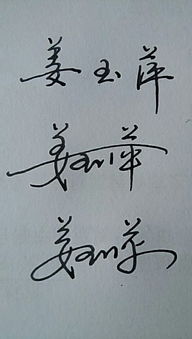 姜玉萍
姜玉萍
姜玉萍